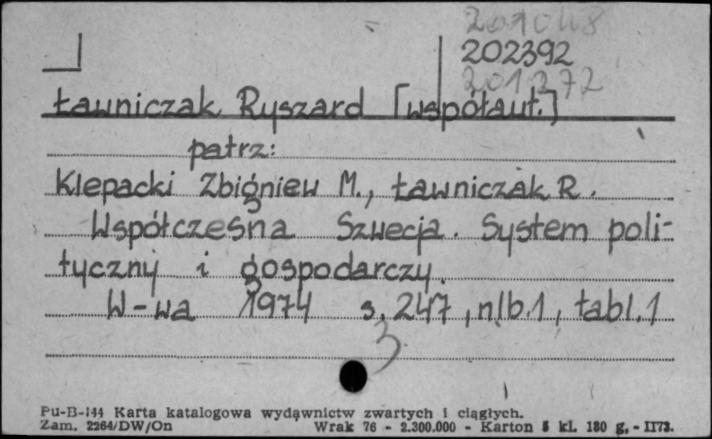 201048
202392
201272
Ławniczak Ryszard [współaut.]
patrz:
Klepacki Zbigniew M., Ławniczak R.
Współczesna Szwecja. System poli-
tyczny i gospodarczy.
W-wa 1974 s. 247, nlb.1, tabl.1
3
Pu-B-144 Karta katalogowa wydawnictw zwartych i ciągłych.
Zam. 2264/DW/On Wrak 76 - 2.300.000 - Karton 5 kl. 180 g. - II73.